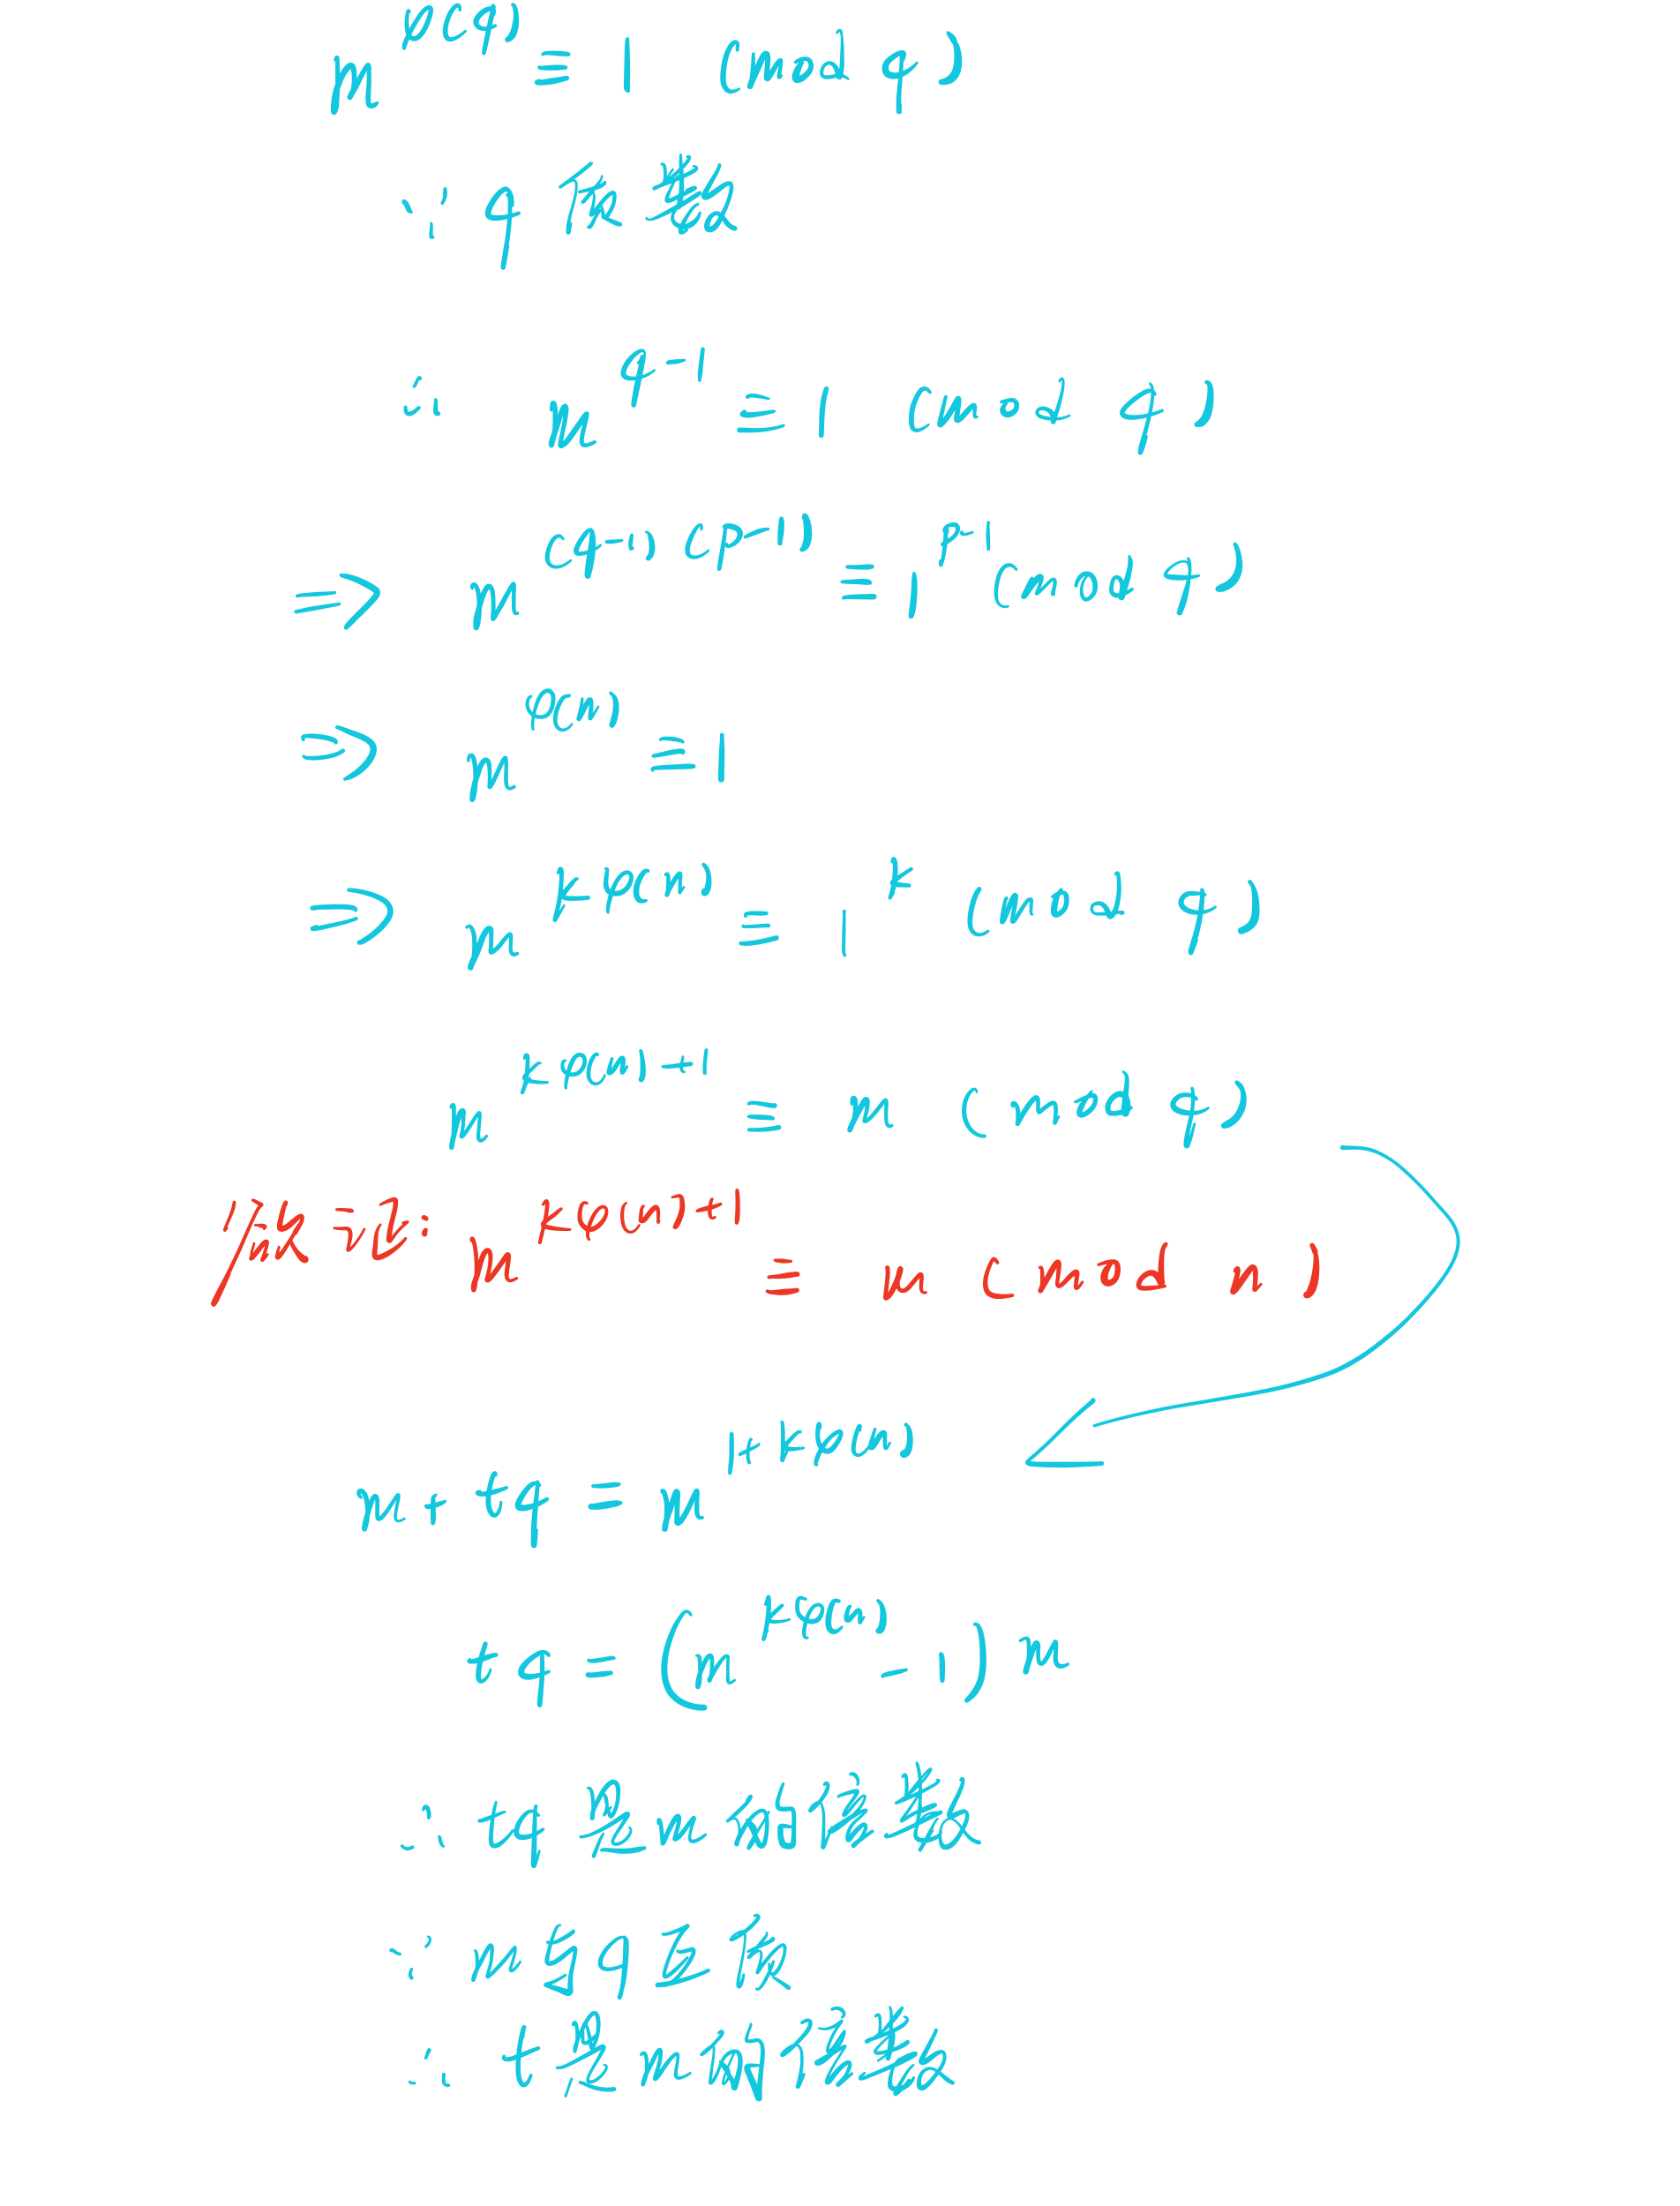 m^φ(q) ≡ 1 (mod q)
∵ q 质数
∴ m^(q-1) ≡ 1 (mod q)
⇒ m^((q-1)(p-1)) ≡ 1^(p-1) (mod q)
⇒ m^φ(n) ≡ 1
⇒ m^(kφ(n)) ≡ 1^k (mod q)
m^(kφ(n)+1) ≡ m (mod q)
m^(kφ(n)+1) ≡ m (mod n)
m + tq = m^(1+kφ(n))
tq = (m^(kφ(n)) - 1) m
∴ tq 是 m 的倍数
∵ m 与 q 互质
∴ t 是 m 的倍数